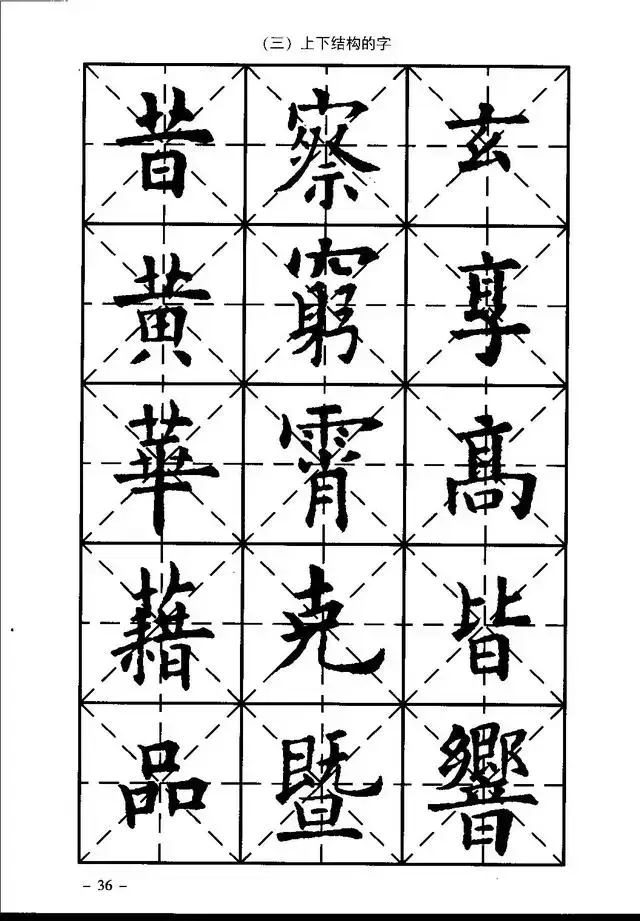 (三)上下结构的字
玄享髙皆響
察窮霄尭暨
昔黄華藉品
- 36 -